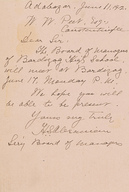 Adabazar, June 11, 1912.
W. W. Peet, Esq.
Constantinople
Dear Sir:
The Board of Managers
of Bardezag High School
will meet at Bardezag
June 17, Monday P.M.
We hope you will
be able to be present.
Yours very truly,
Secy Board of Managers